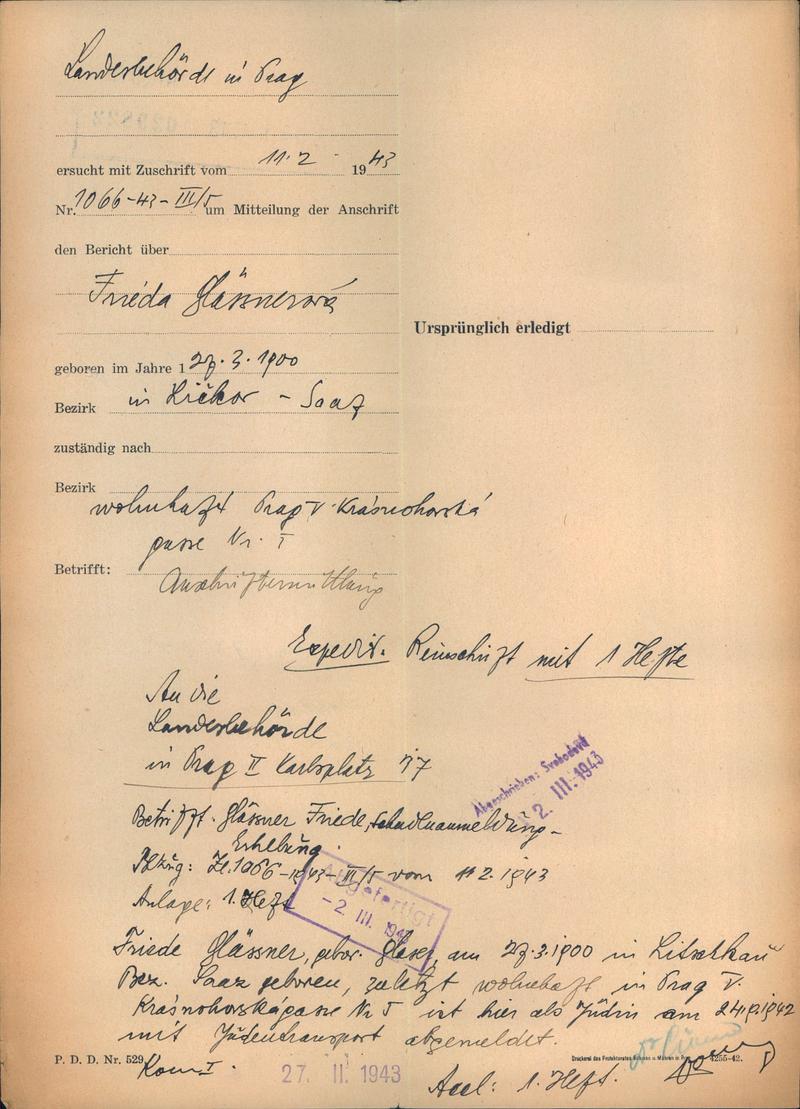 Landesbehörde in Prag
ersucht mit Zuschrift vom 11.2. 1943
Nr. 1066-43-III/5 um Mitteilung der Anschrift
den Bericht über
Frieda Glässnerová
Ursprünglich erledigt
geboren im Jahre 1 27.3.1900
Bezirk in Ličkov - Saaz
zuständig nach
Bezirk
wohnhaft Prag V Krásnohorská
gasse Nr.
Betrifft:
Anschriftermittlung
Expedit. Reinschrift mit 1 Hefte
An die
Landesbehörde
in Prag II Karlsplatz
Abgeschrieben: Svobodová
2. III. 1943
Betrifft. Glässner Friede,
Erhebung.
Bezug: Zl. 1066-1943-III/5 vom 11 2. 1943
Anlage: 1. Heft
Abgefertigt
-2. III. 1943
Friede Glässner, gebor. Glaser, am 27.3.1900 in Litschkau
Bez. Saaz geboren, zuletzt wohnhaft in Prag V.
Krásnohorskágasse Nr 5 ist hier als Jüdin am 1942
mit Judentransport abgemeldet.
P. D. D. Nr. 529
Druckerei des Protektorates Böhmen u. Mähren in 4255-42.
27. II. 1943
1. Heft.